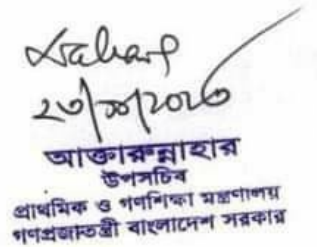 ২৩/১১/২০২৩
আক্তারুন্নাহার
উপসচিব
প্রাথমিক ও গণশিক্ষা মন্ত্রণালয়
গণপ্রজাতন্ত্রী বাংলাদেশ সরকার